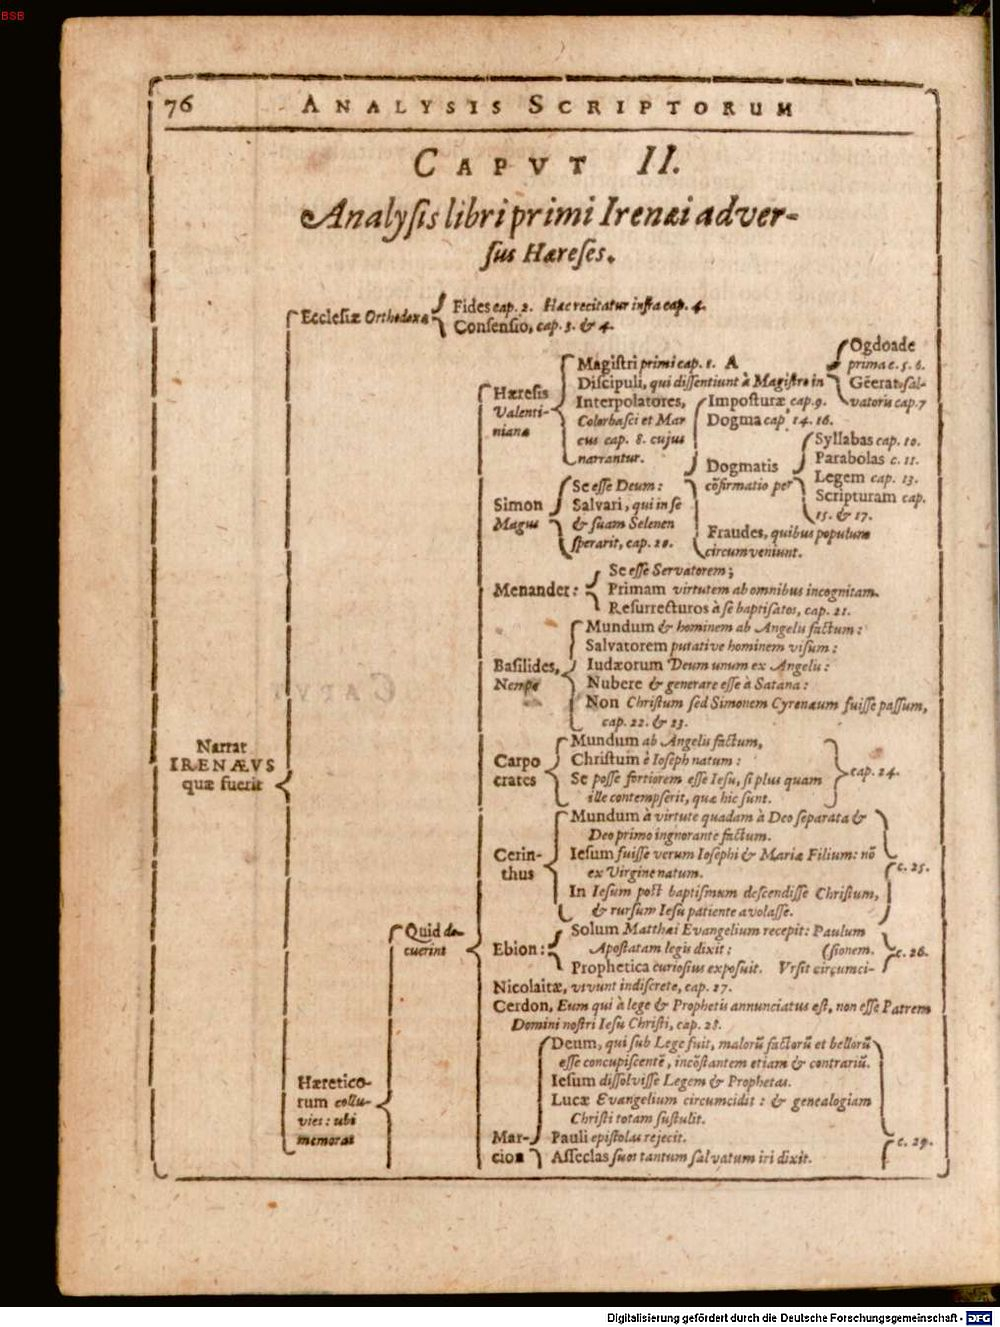 BSB
76 ANALYSIS SCRIPTORUM
CAPVT II.
Analysis libri primi Irenæi adver-
sus Hæreses.
Ecclesiæ Orthodoxæ
Fides cap. 2. Hæc recitatur infra cap. 4.
Consensio, cap. 3. & 4.
Hæresis
Valenti-
nianæ
Magistri primi cap. 1. A
Discipuli, qui dissentiunt à Magistro in
Ogdoade
prima c. 5. 6.
Gẽerat. sal-
vatoris cap. 7
Interpolatores,
Colorbasci et Mar
cus cap. 8. cujus
narrantur.
Imposturæ cap. 9.
Dogma cap. 14. 16.
Dogmatis
cõfirmatio per
Syllabas cap. 10.
Parabolas c. 11.
Legem cap. 13.
Scripturam cap.
15. & 17.
Fraudes, quibus populum
circumveniunt.
Simon
Magus
Se esse Deum:
Salvari, qui in se
& suam Selenen
sperarit, cap. 20.
Menander:
Se esse Servatorem;
Primam virtutem ab omnibus incognitam.
Resurrecturos à se baptisatos, cap. 21.
Basilides,
Nempe
Mundum & hominem ab Angelis factum:
Salvatorem putative hominem visum:
Iudæorum Deum unum ex Angelis:
Nubere & generare esse à Satana:
Non Christum sed Simonem Cyrenæum fuisse passum,
cap. 22. & 23.
Carpo
crates
Mundum ab Angelis factum,
Christum è Ioseph natum:
Se posse fortiorem esse Iesu, si plus quam
ille contempserit, quæ hic sunt.
cap. 24.
Narrat
IRENÆVS
quæ fuerit
Cerin-
thus
Mundum à virtute quadam à Deo separata &
Deo primo ingnorante factum.
Iesum fuisse verum Iosephi & Mariæ Filium: nõ
ex Virgine natum.
In Iesum post baptismum descendisse Christum,
& rursum Iesu patiente avolasse.
c. 25.
Quid do-
cuerint
Ebion:
Solum Matthæi Evangelium recepit: Paulum
Apostatam legis dixit: (sionem.
Prophetica curiosius exposuit. Vrsit circumci-
c. 26.
Nicolaitæ, vivunt indiscrete, cap. 27.
Cerdon, Eum qui à lege & Prophetis annunciatus est, non esse Patrem
Domini nostri Iesu Christi, cap. 28.
Hæretico-
rum collu-
vies: ubi
memorat
Mar-
cion
Deum, qui sub Lege fuit, malorũ factorũ et bellorũ
esse concupiscentẽ, incõstantem etiam & contrariũ.
Iesum dissolvisse Legem & Prophetas.
Lucæ Evangelium circumcidit: & genealogiam
Christi totam sustulit.
Pauli epistolas rejecit.
Asseclas suos tantum salvatum iri dixit.
c. 29.
Digitalisierung gefördert durch die Deutsche Forschungsgemeinschaft - DFG